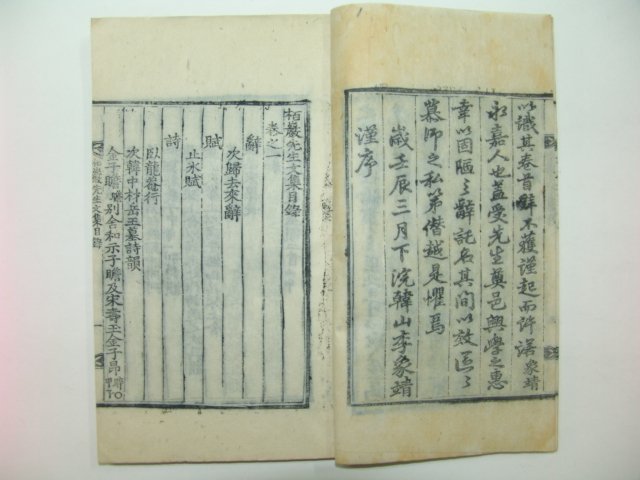 以識其卷首辭不獲謹起而許諾象靖
永嘉人也盖受先生奠邑興學之惠
幸以固陋之辭託名其間以效區〻
慕仰之私第僭越是懼焉
歲壬辰三月下浣韓山李象靖
謹序
栢巖先生文集目錄
卷之一
辭
次歸去來辭
賦
止水賦
詩
臥龍菴行
次韓中村岳王墓詩韻
金子瞻
別舍和示子瞻及宋壽玉金子昂
栢巖先生文集目錄